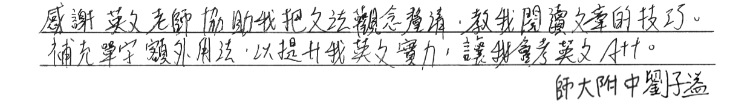 感謝英文老師協助我把文法觀念釐清，教我閱讀文章的技巧。
補充單字額外用法，以提升我英文實力，讓我會考英文A++。
師大附中劉子溢